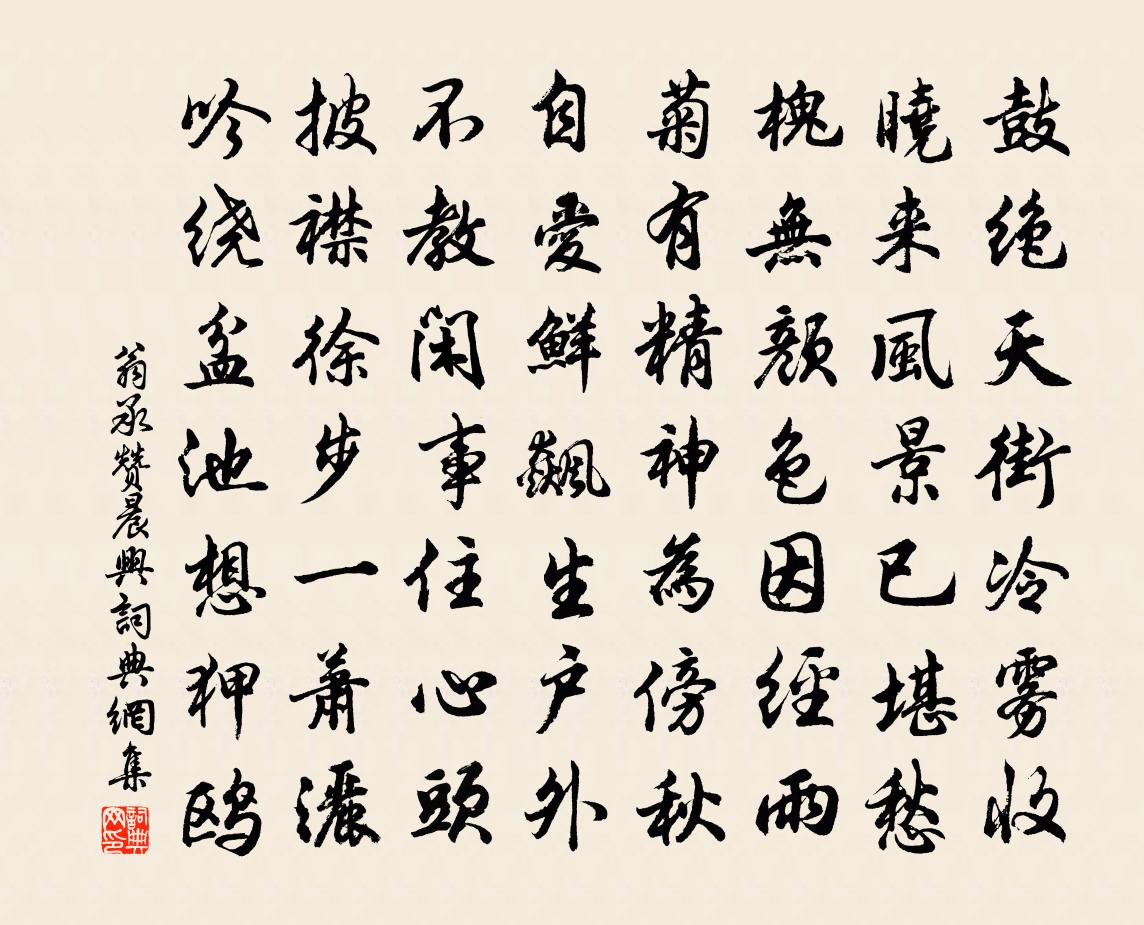 鼓绝天街冷雾收
曉来風景已堪愁
槐無顏色因經雨
菊有精神為傍秋
自愛鮮飊生户外
不教閑事住心頭
披襟徐步一蕭灑
吟绕盆池想狎鸥
翁承赞晨興詞典網集
詞典网印